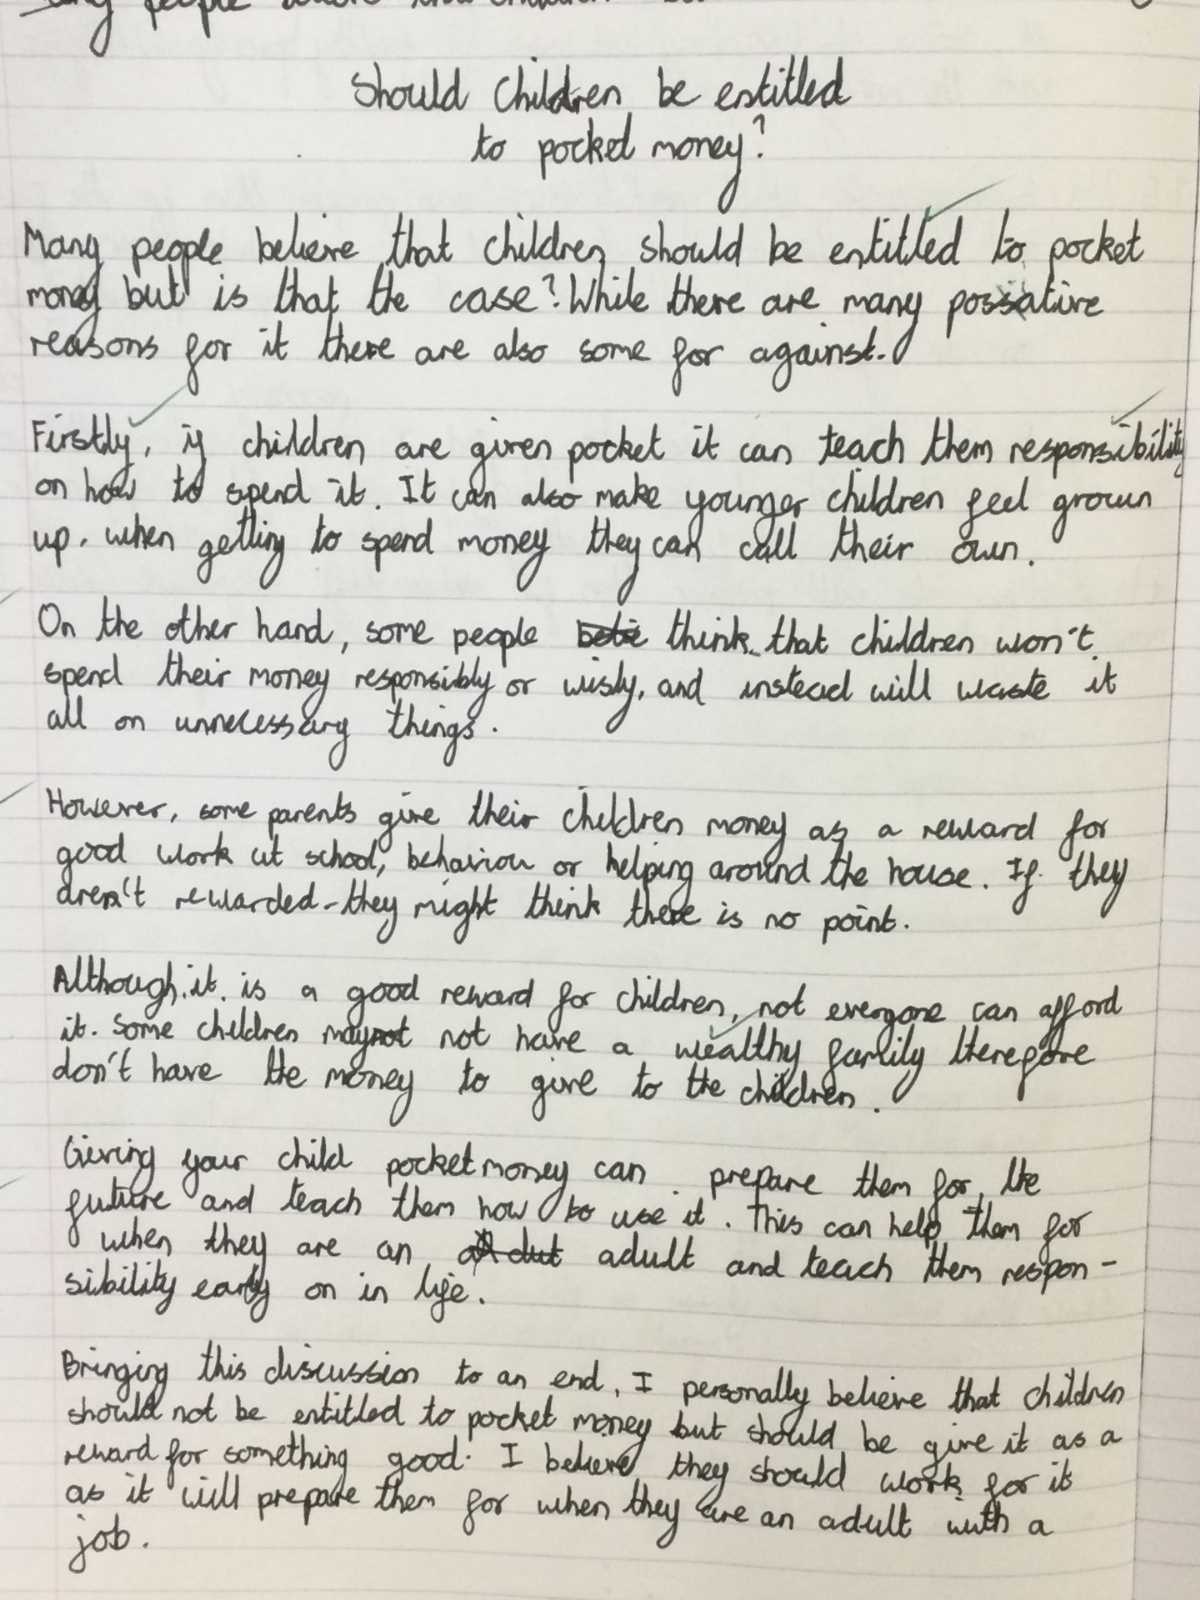 Should children be entitled
to pocket money?
Many people believe that children should be entitled to pocket
money but is that the case? While there are many possative
reasons for it there are also some for against.
Firstly, if children are given pocket it can teach them responsibility
on how to spend it. It can also make younger children feel grown
up. when getting to spend money they can call their own.
On the other hand, some people think that children won't
spend their money responsibly or wisly, and instead will waste it
all on unnecessary things.
However, some parents give their children money as a reward for
good work at school, behaviour or helping around the house. If they
aren't rewarded-they might think there is no point.
Although it is a good reward for children, not everyone can afford
it. Some children may not have a wealthy family therefore
don't have the money to give to the children.
Giving your child pocket money can prepare them for the
future and teach them how to use it. This can help them for
when they are an adult and teach them respon-
sibility early on in life.
Bringing this discussion to an end, I personally believe that children
should not be entitled to pocket money but should be give it as a
reward for something good. I believe they should work for it
as it will prepare them for when they are an adult with a
job.